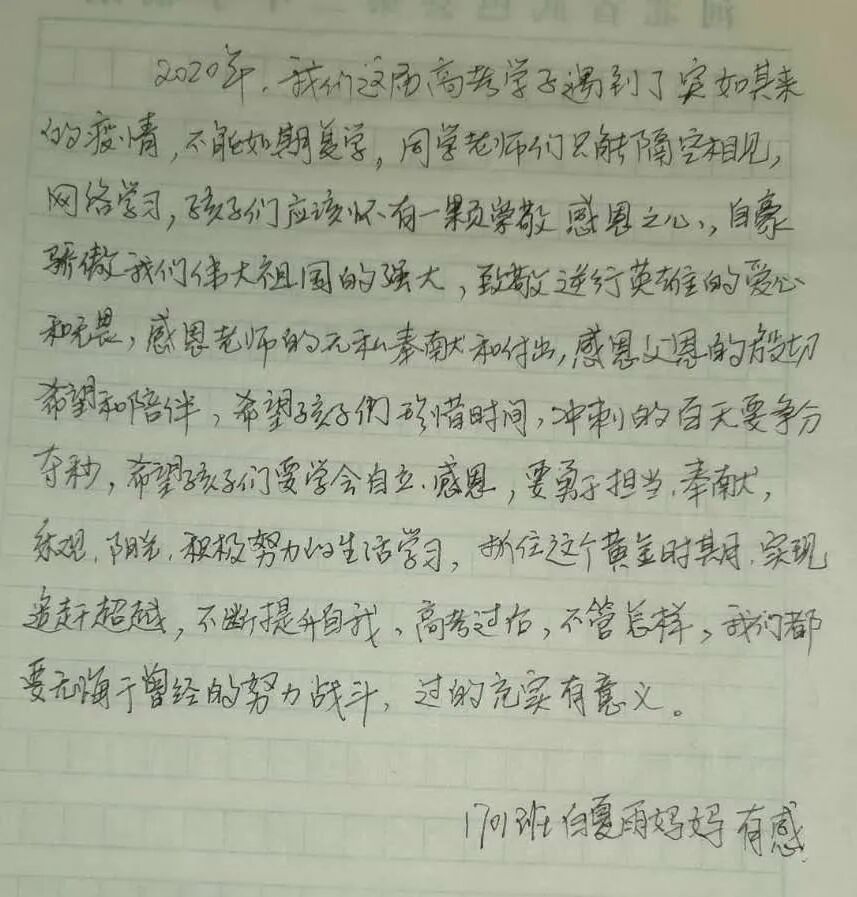 2020年，我们这届高考学子遇到了突如其来
的疫情，不能如期复学，同学老师们只能隔空相见，
网络学习，孩子们应该怀有一颗崇敬感恩之心，自豪
骄傲我们伟大祖国的强大，致敬逆行英雄的爱心
和无畏，感恩老师的无私奉献和付出，感恩父恩的殷切
希望和陪伴，希望孩子们珍惜时间，冲刺的百天要争分
夺秒，希望孩子们要学会自立、感恩，要勇于担当、奉献，
乐观、阳光、积极努力的生活学习，抓住这个黄金时期、实现
追赶超越，不断提升自我、高考过后，不管怎样，我们都
要无悔于曾经的努力战斗，过的充实有意义。
1701班白夏雨妈妈 有感